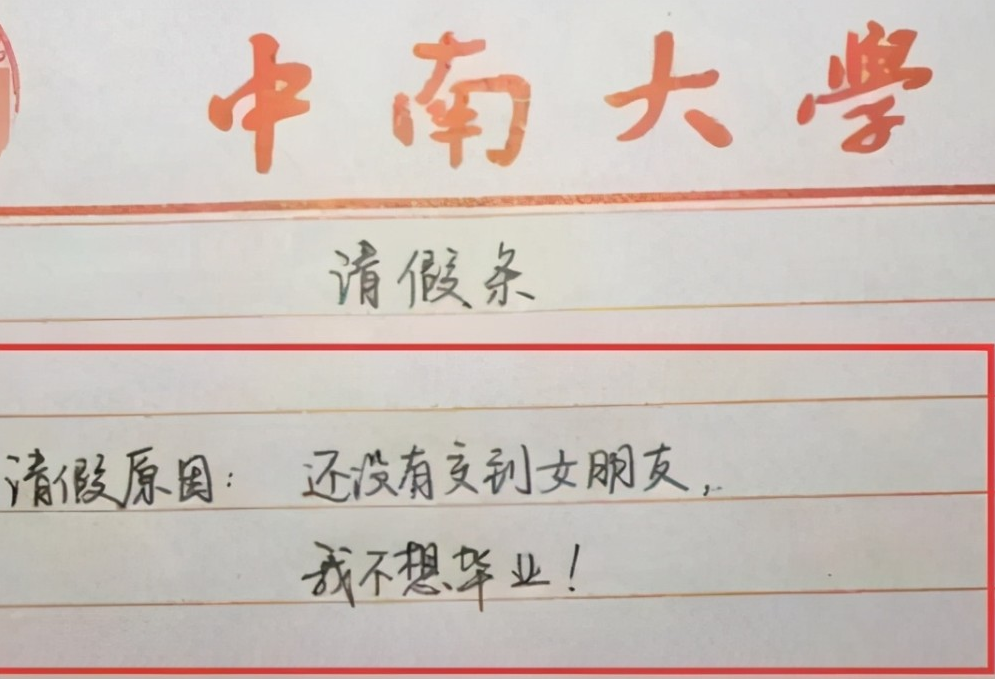 中南大学
请假条
请假原因：还没有交到女朋友，
我不想毕业！